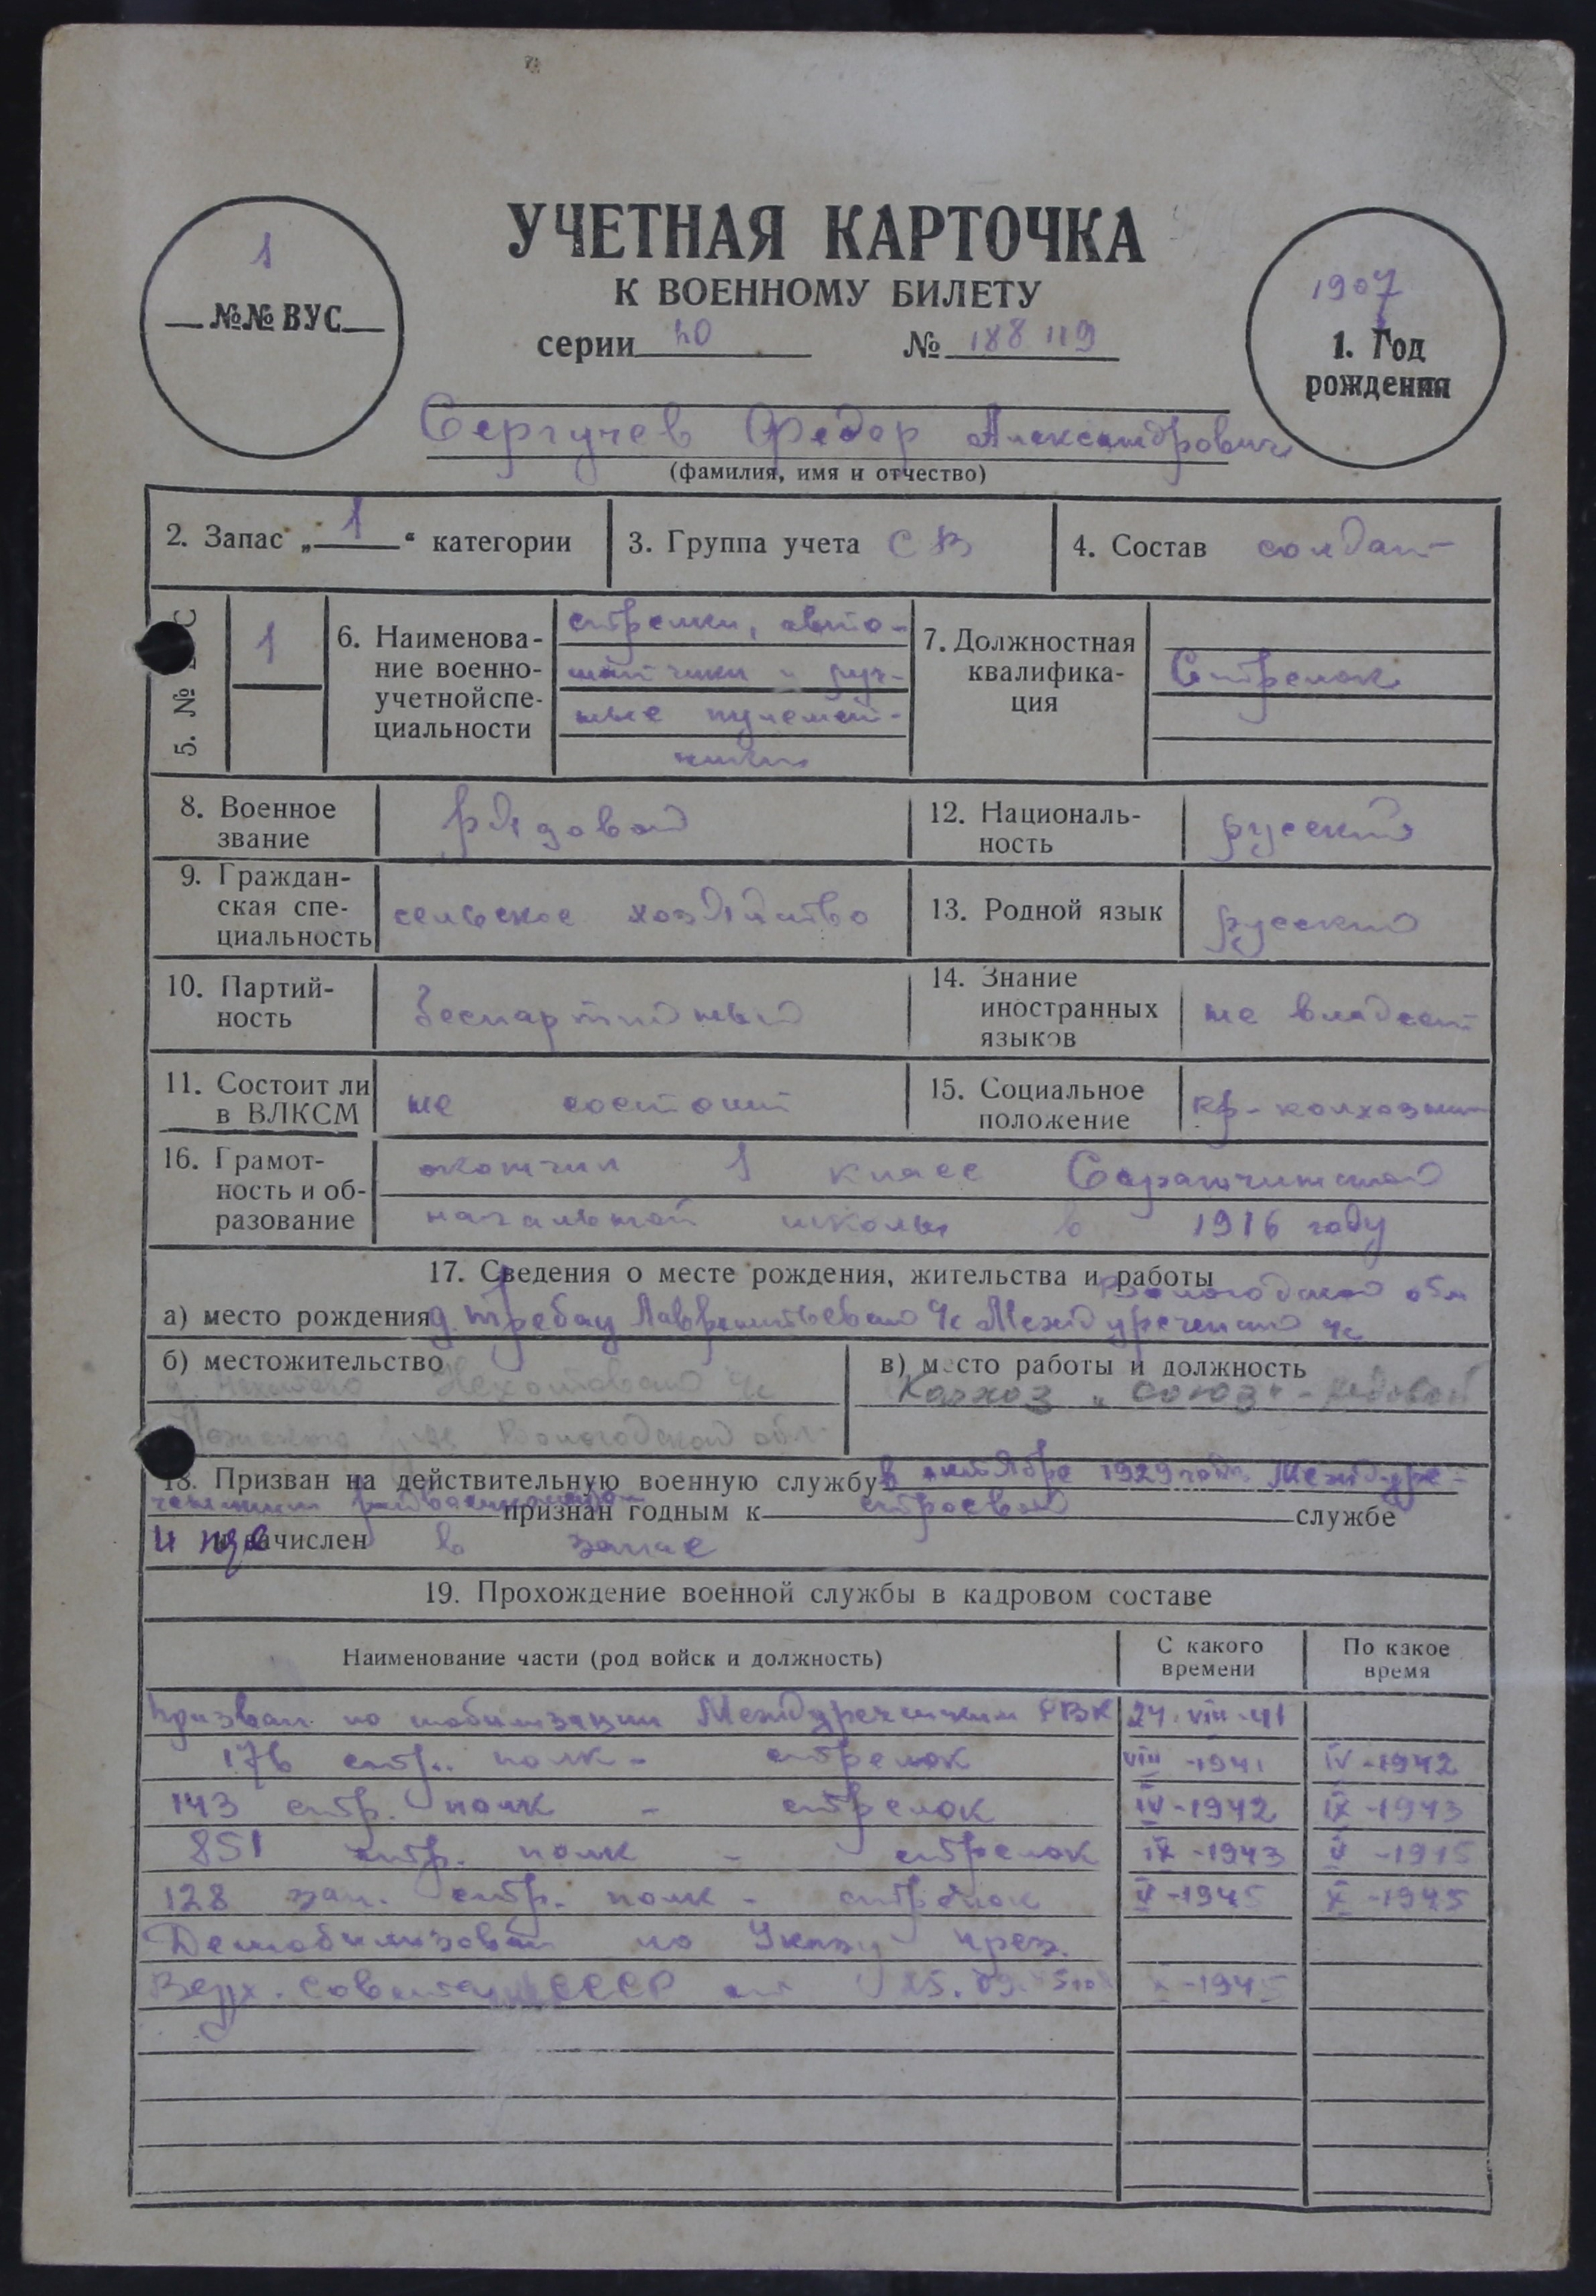 УЧЕТНАЯ КАРТОЧКА
К ВОЕННОМУ БИЛЕТУ
серии № 188119
1
№№ ВУС
1907
1. Год
рождения
Сергучев Федор Александрович
(фамилия, имя и отчество)
2. Запас „1“ категории
3. Группа учета СВ
4. Состав солдат
5. № ВУС 1
6. Наименова-
ние военно-
учетной спе-
циальности
стрелки, авто-
матчики и руч-
ные пулемет-
чики
7. Должностная
квалифика-
ция
Стрелок
8. Военное
звание
рядовой
12. Националь-
ность
русский
9. Граждан-
ская спе-
циальность
сельское хозяйство
13. Родной язык русский
10. Партий-
ность
беспартийный
14. Знание
иностранных
языков
не владеет
11. Состоит ли
в ВЛКСМ
не состоит
15. Социальное
положение
кр-колхозник
16. Грамот-
ность и об-
разование
окончил 1 класс
начальной школы в 1916 году
17. Сведения о месте рождения, жительства и работы
Вологодской обл
а) место рождения д. Лаврентьевско Междуреченско
б) местожительство
Вологодской обл.
в) место работы и должность
Колхоз „Союз“ - рядовой
18. Призван на действительную военную службу в октябре 1929 года Междуре-
ченским признан годным к строевой службе
и зачислен в запас
19. Прохождение военной службы в кадровом составе
Наименование части (род войск и должность)
С какого
времени
По какое
время
Призван по мобилизации Междуреченским РВК 24.VIII-41
176 стр. полк - стрелок VIII-1941 IV-1942
143 стр. полк - стрелок IV-1942 IX-1943
851 стр. полк - стрелок IX-1943 V-1945
128 зап. стр. полк - стрелок V-1945 X-1945
Демобилизован по Указу през.
Верх. Совета СССР от 25.09. -1945